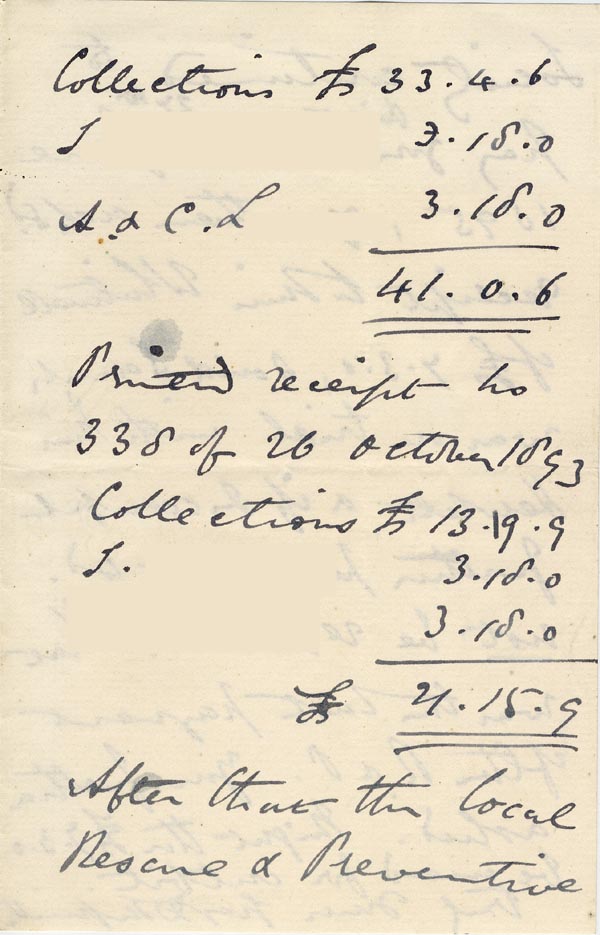 Collections £s 33.4.6
J 3.18.0
A. & C. L 3.18.0
41.0.6
Printed receipt no
338 of 26 October 1893
Collections £s 13.19.9
J. 3.18.0
3.18.0
£s 21.15.9
After that the local
Rescue & Preventive